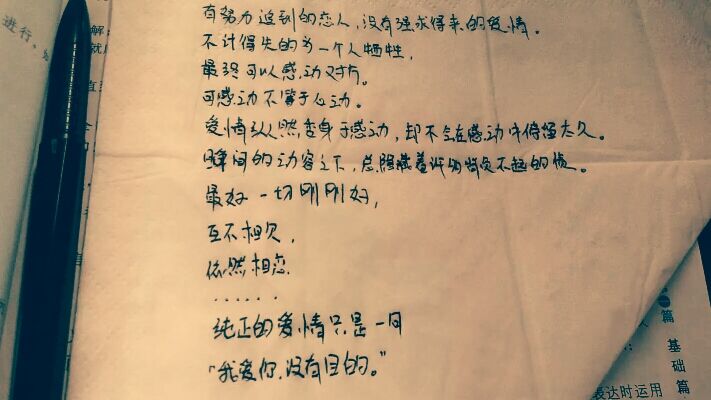 有努力追到的恋人,没有强求得来的爱情。
不计得失的为一个人牺牲,
最终可以感动对方。
可感动不等于心动。
爱情纵然变身于感动,却不会在感动中停留太久。
瞬间的动容之下,总隐藏着许多背负不起的债。
最好一切刚刚好,
互不相欠,
依然相恋
......
纯正的爱情只是一句
“我爱你,没有目的。”
进行、
解:
就
直
全
一
篇
基
础
篇
表达时运用